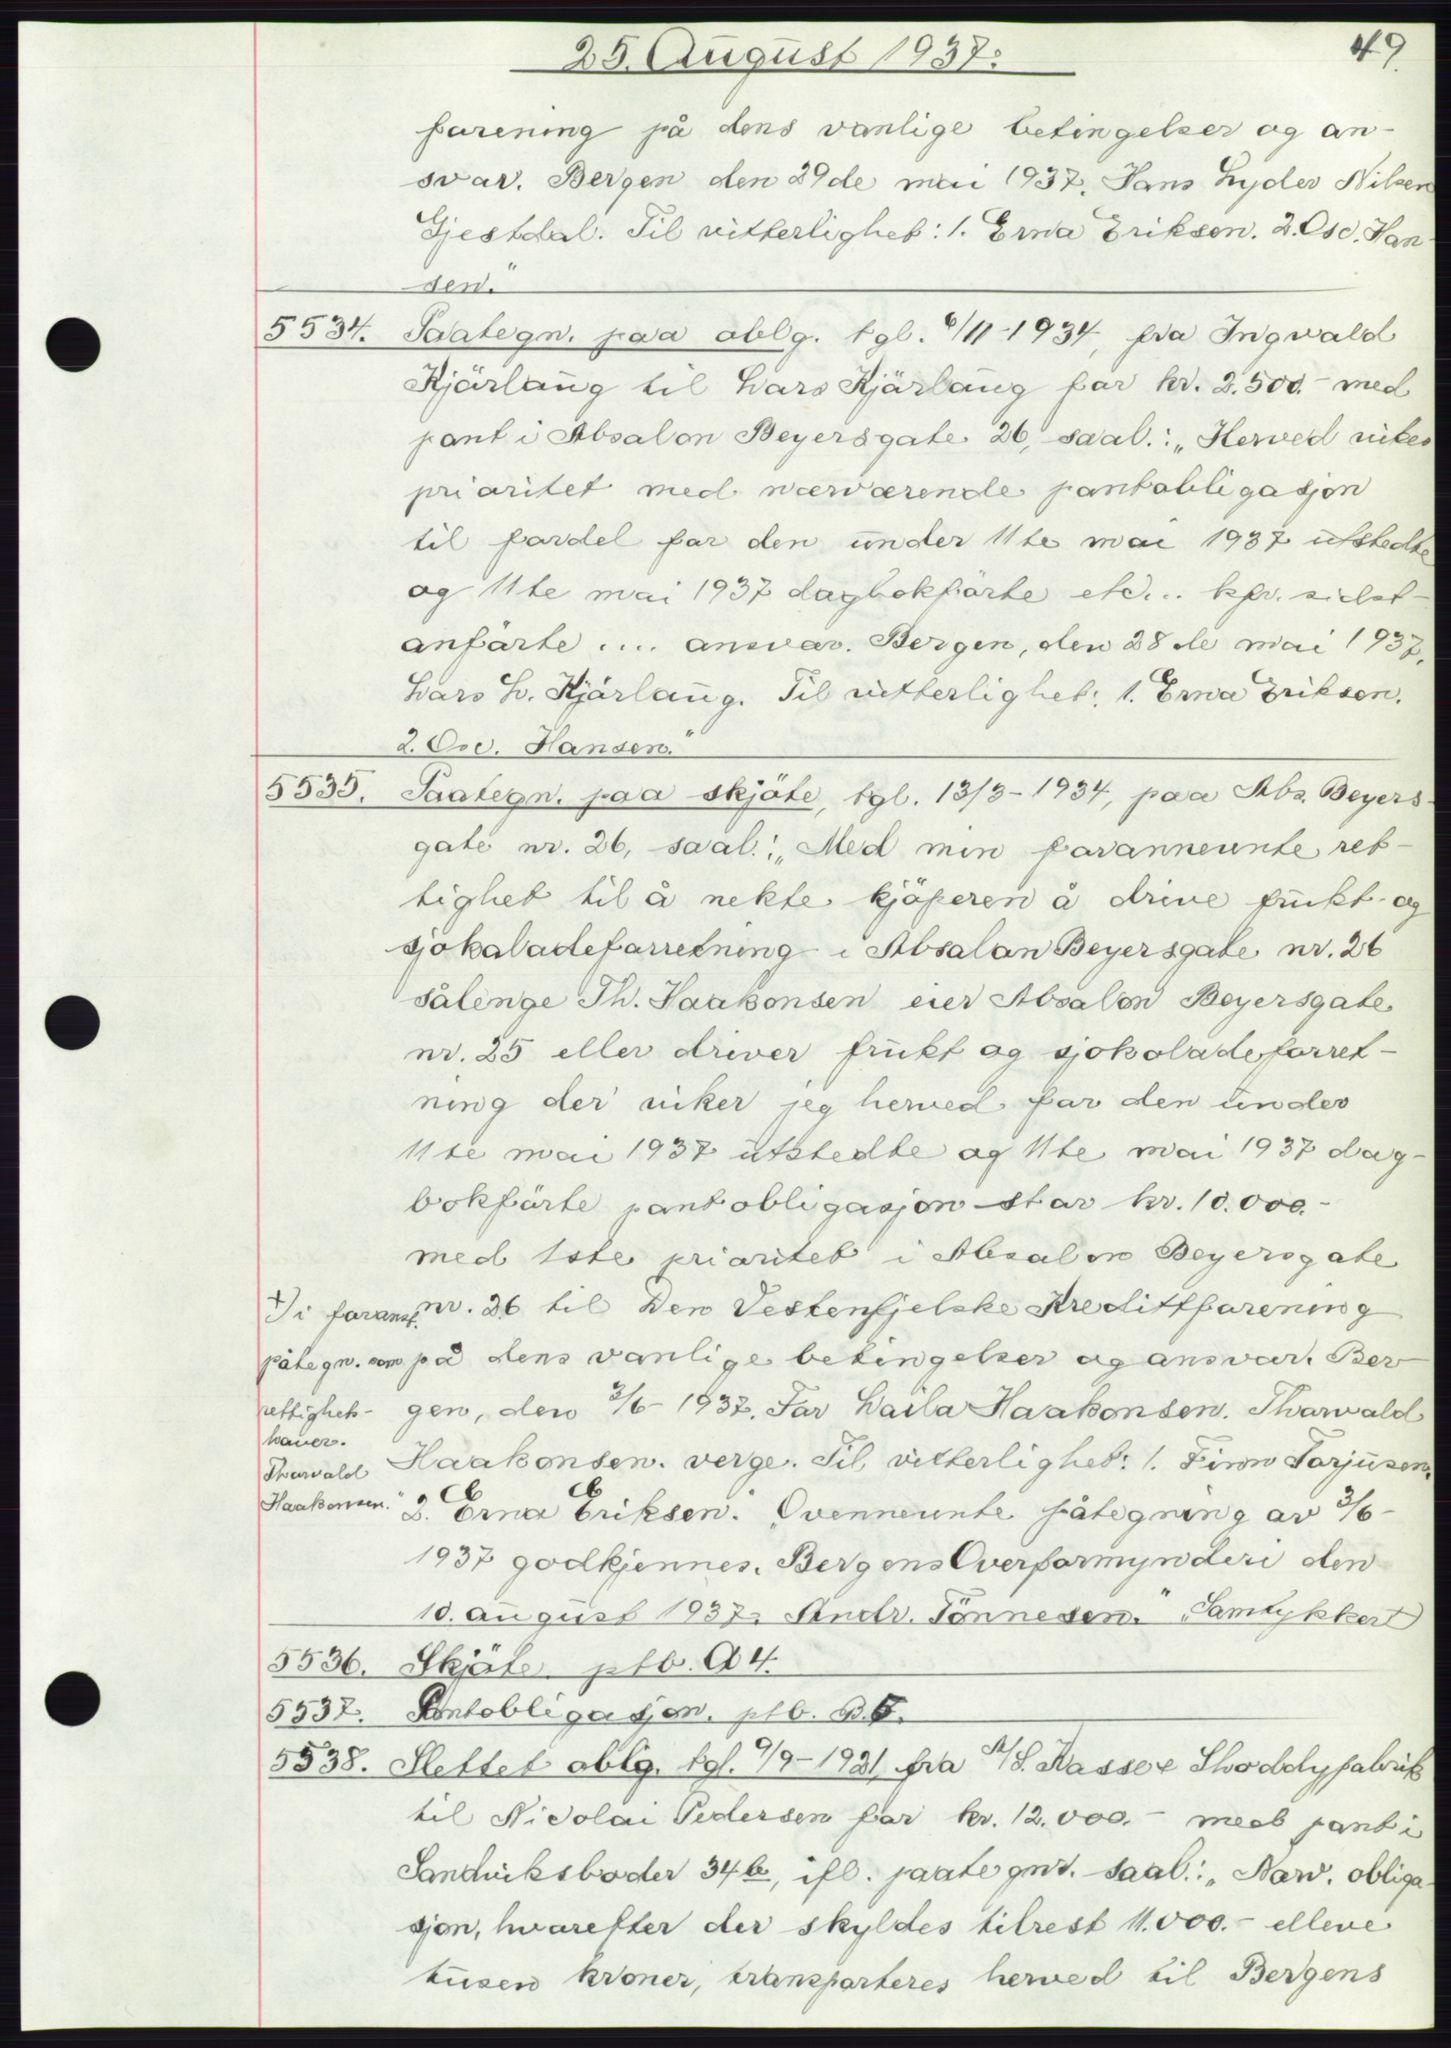 25. August 1937.
49.
forening på dens vanlige betingelser og an-
svar. Bergen den 29de mai 1937. Hans Lyder Nilsen
Gjestdal. Til vitterlighet: 1. Erna Eriksen. 2. Osc. Han-
sen."
5534. Paategn. paa oblg. tgl. 6/11-1934, fra Ingvald
Kjärlaug til Lars Kjärlaug for kr. 2.500.- med
pant i Absalon Beyersgate 26, saal.: „Herved vikes
prioritet med nærværende pantobligasjon
til fordel for den under 11te mai 1937 utstedte
og 11te mai 1937 dagbokførte etc... kfr. sidst-
anførte .... ansvar. Bergen, den 28de mai 1937.
Lars L. Kjärlaug. Til vitterlighet: 1. Erna Eriksen.
2. Osc. Hansen."
5535. Paategn. paa skjöte, tgl. 13/3-1934, paa Abs. Beyers-
gate nr. 26, saal.: „Med min forannevnte ret-
tighet til å nekte kjöperen å drive frukt- og
sjokoladeforretning i Absalon Beyersgate nr. 26
sålenge Th. Haakonsen eier Absalon Beyersgate
nr. 25 eller driver frukt og sjokoladeforret-
ning der viker jeg herved for den under
11te mai 1937 utstedte og 11te mai 1937 dag-
bokførte pantobligasjon stor kr. 10.000.-
med 1ste prioritet i Absalon Beyersgate
nr. 26 til Den Vestenfjelske Kredittforening
på dens vanlige betingelser og ansvar. Ber-
gen, den 3/6-1937. For Laila Haakonsen. Thorvald
Haakonsen. verge. Til vitterlighet: 1. Finn Torjusen.
2. Erna Eriksen." „Ovennevnte påtegning av 3/6-
1937 godkjennes. Bergens Overformynderi den
10. august 1937. Andr. Tönnesen." „Samtykkert
i foranst.
påtegn. som
rettighets-
haver.
Thorvald
Haakonsen."
5536. Skjöte. ptb. A 4.
5537. Pantobligasjon. ptb. B.5.
5538. Slettet oblg. tgl. 9/9-1921 fra A/S. Rasse & Shoddyfabrik
til Nicolai Pedersen for kr. 12.000.- med pant i
Sandviksboder 34 b, ifl. paategn. saal.: „Nærv. obliga-
sjon, hvorefter der skyldes tilrest 11.000.- elleve
tusen kroner, transporteres herved til Bergens